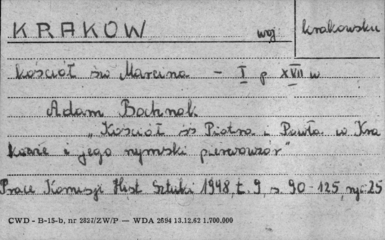 KRAKÓW woj krakowskie
kościół św Marcina - I p XVII w
Adam Bochnak
"Kościół śś Piotra i Pawła w Kra
kowie i jego rzymski pierwowzór"
Prace Komisji Hist Sztuki 1948, t. 9, s. 90-125, ryc 25
CWD - B-15-b, nr 2827/ZW/P — WDA 2694 13.12.62 1.700.000